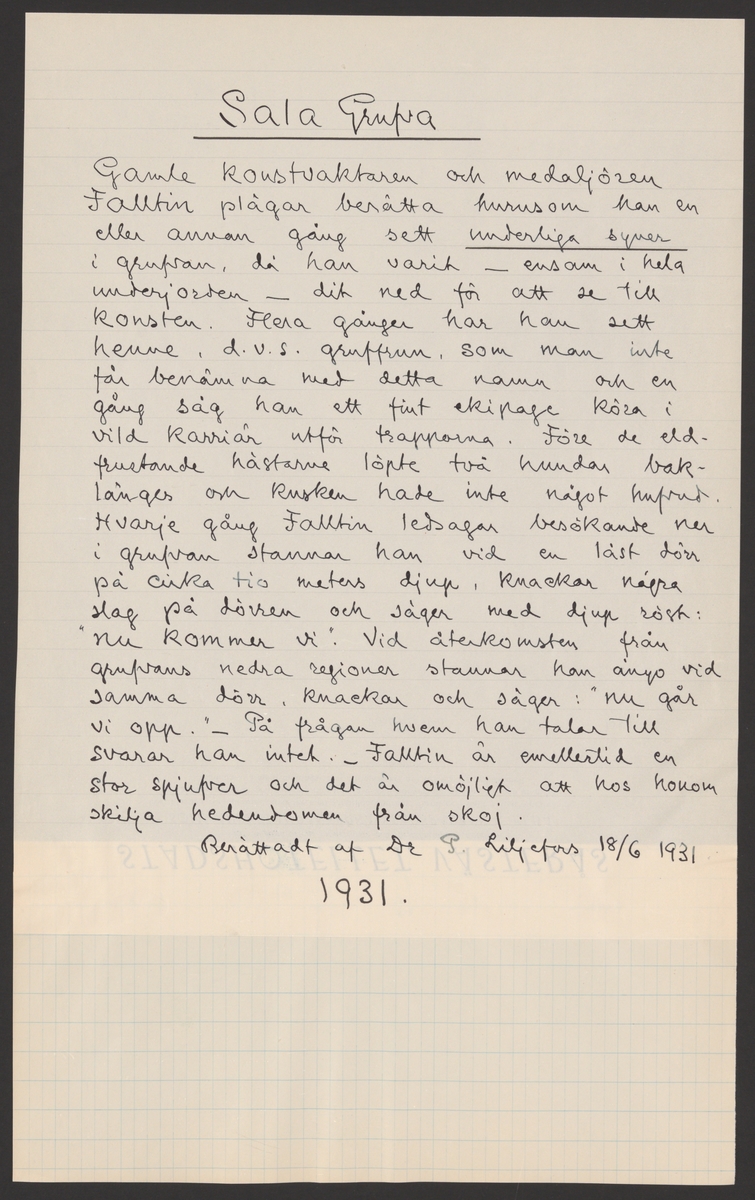 Sala Grufva
Gamle konstvaktaren och medaljören
Falltin plägar berätta hurusom han en
eller annan gång sett underliga syner
i grufvan, då han varit – ensam i hela
underjorden – dit ned för att se till
konsten. Flera gånger har han sett
henne, d.v.s. gruffrun, som man inte
får benämna med detta namn och en
gång såg han ett fint ekipage köra i
vild karriär utför trapporna. Före de eld-
frustande hästarne löpte två hundar bak-
länges och kusken hade inte något hufvud.
Hvarje gång Falltin ledsagar besökande ner
i grufvan stannar han vid en låst dörr
på cirka tio meters djup, knackar några
slag på dörren och säger med djup röst:
"nu kommer vi". Vid återkomsten från
grufvans nedra regioner stannar han ånyo vid
samma dörr, knackar och säger: "nu går
vi opp." – På frågan hvem han talar till
svarar han intet. – Falltin är emellertid en
stor spjufver och det är omöjligt att hos honom
skilja hedendomen från skoj.
Berättadt af Dr P. Liljefors 18/6 1931
STADSHOTELLET VÄSTERÅS
1931.